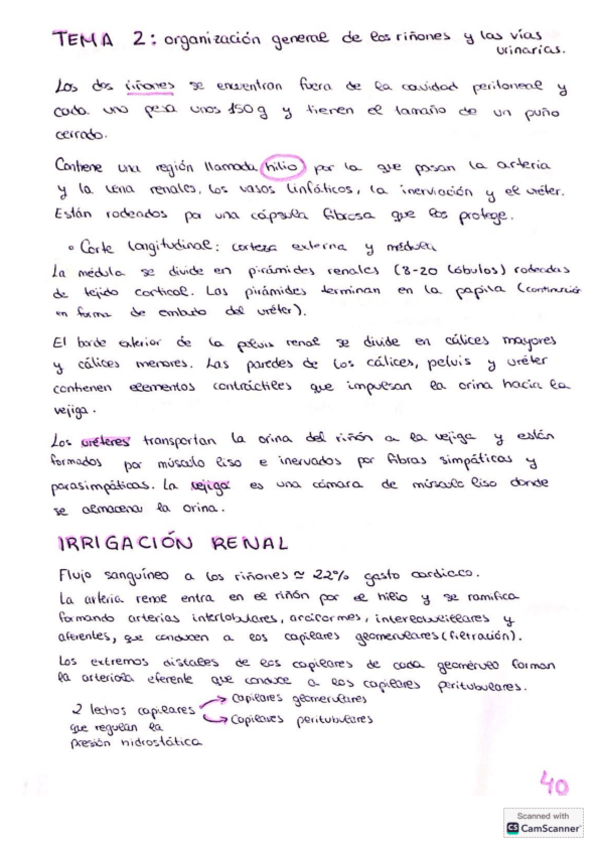 TEMA 2: organización general de los riñones y las vías
urinarias.
Los dos riñones se encuentran fuera de la cavidad peritoneal y
cada uno pesa unos 150g y tienen el tamaño de un puño
cerrado.
Contiene una región llamada hilio por la que pasan la arteria
y la vena renales, los vasos linfáticos, la inervación y el uréter.
Están rodeados por una cápsula fibrosa que los protege.
• Corte longitudinal: corteza externa y médula
La médula se divide en pirámides renales (8-20 lóbulos) rodeadas
de tejido cortical. Las pirámides terminan en la papila (continuación
en forma de embudo del uréter).
El borde exterior de la pelvis renal se divide en cálices mayores
y cálices menores. Las paredes de los cálices, pelvis y uréter
contienen elementos contráctiles que impulsan la orina hacia la
vejiga.
Los uréteres transportan la orina del riñón a la vejiga y están
formados por músculo liso e inervados por fibras simpáticas y
parasimpáticas. La vejiga es una cámara de músculo liso donde
se almacena la orina.
IRRIGACIÓN RENAL
Flujo sanguíneo a los riñones ≃ 22% gasto cardiaco.
La arteria renal entra en el riñón por el hilio y se ramifica
formando arterias interlobulares, arciformes, interlobulillares y
aferentes, que conducen a los capilares glomerulares (filtración).
Los extremos distales de los capilares de cada glomérulo forman
la arteriola eferente que conduce a los capilares peritubulares.
2 lechos capilares → Capilares glomerulares
que regulan la → Capilares peritubulares
presión hidrostática
40
Scanned with
CS CamScanner